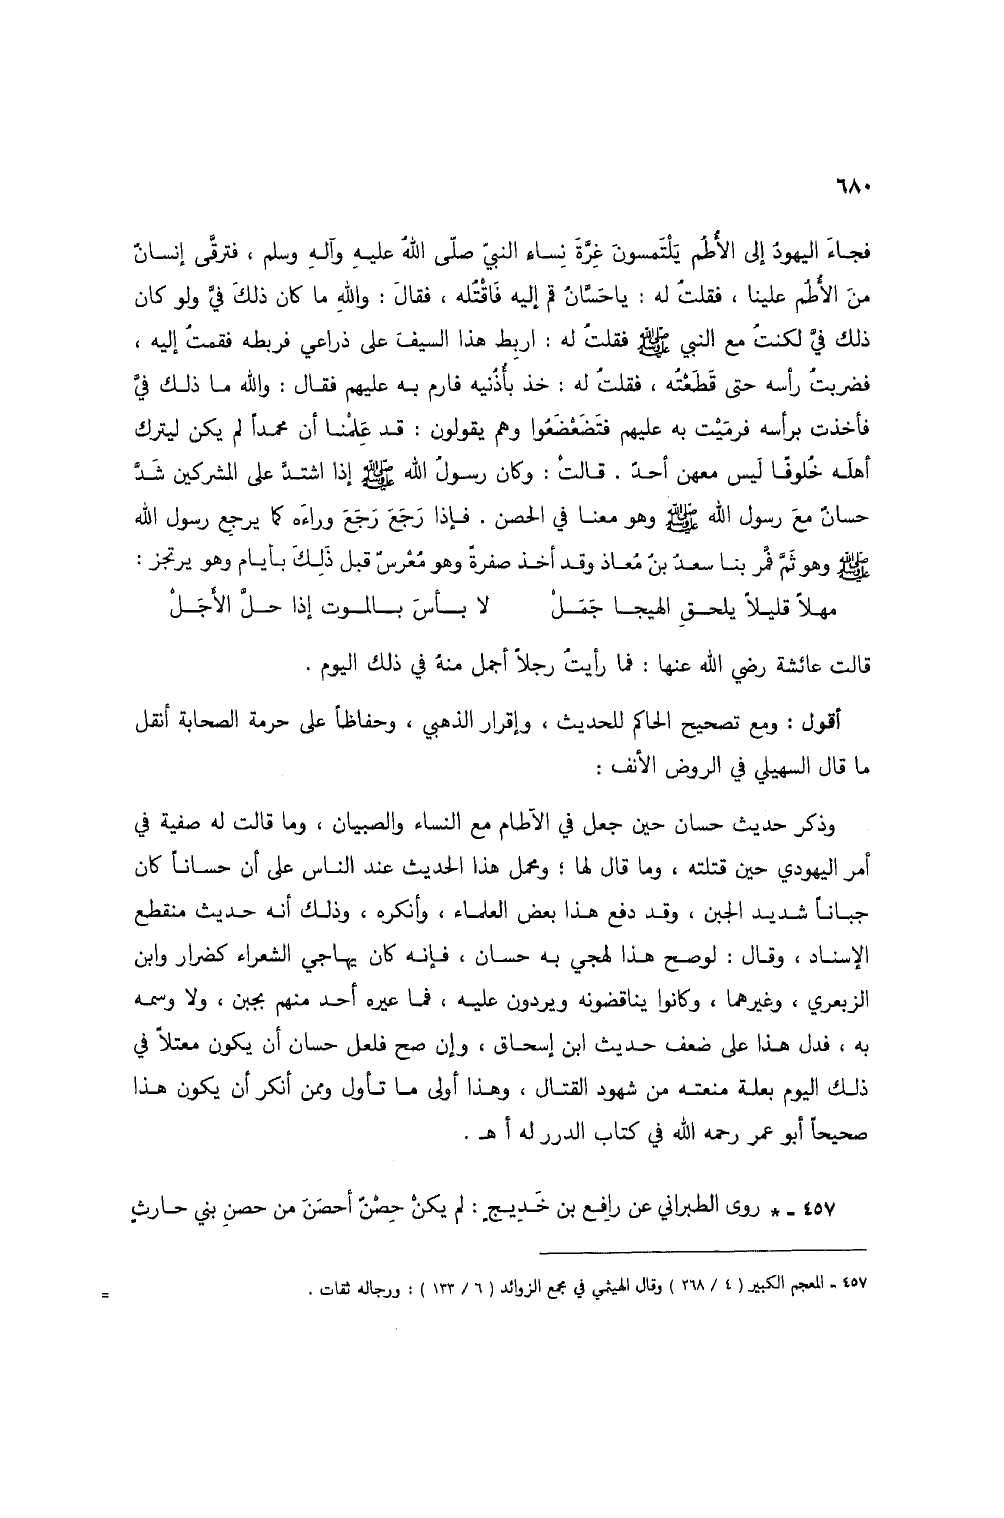 ٦٨٠
فجاءَ اليهودُ إلى الأُطُم يَلْتَمسونَ غِرَّةَ نِساء النبيّ صلّى اللهُ عليهِ وآلهِ وسلم ، فترقَّى إنسانٌ
منَ الأُطُم علينا ، فقلتُ له : ياحَسَّانُ قم إليه فَاقْتُله ، فقالَ : واللهِ ما كان ذلكَ فيَّ ولو كان
ذلك فيَّ لكنتُ مع النبي ﷺ فقلتُ له : اربِط هذا السيفَ على ذراعي فربطه فقمتُ إليه ،
فضربتُ رأسه حتى قَطَعْتُه ، فقلتُ له : خذ بأُذُنيه فارم به عليهم فقال : والله ما ذلك فيَّ
فأخذت برأسه فرمَيْت به عليهم فتَضَعْضَعُوا وهم يقولون : قد عَلِمْنا أن محمداً لم يكن ليترك
أهلَه خُلوفًا لَيس معهن أحدٌ . قالتْ : وكان رسولُ الله ﷺ إذا اشتدَّ على المشركين شَدَّ
حسانٌ معَ رسول الله ﷺ وهو معنا في الحصن . فإذا رَجَعَ رَجَعَ وراءَه كما يرجع رسول الله
ﷺ وهو ثَمَّ فمَّر بنا سعدُ بنُ مُعاذ وقد أخذ صفرةً وهو مُعْرسٌ قبل ذَلِكَ بأيام وهو يرتجز :
مهلاً قليلاً يلحقِ الهيجا جَمَلْ لا بأسَ بالموت إذا حلَّ الأَجَلْ
قالت عائشة رضي الله عنها : فما رأيتُ رجلاً أجمل منهُ في ذلك اليوم .
أقول : ومع تصحيح الحاكم للحديث ، وإقرار الذهبي ، وحفاظاً على حرمة الصحابة أنقل
ما قال السهيلي في الروض الأنف :
وذكر حديث حسان حين جعل في الآطام مع النساء والصبيان ، وما قالت له صفية في
أمر اليهودي حين قتلته ، وما قال لها ؛ ومحمل هذا الحديث عند الناس على أن حساناً كان
جباناً شديد الجبن ، وقد دفع هذا بعض العلماء ، وأنكره ، وذلك أنه حديث منقطع
الإسناد ، وقال : لوصح هذا لهجي به حسان ، فإنه كان يهاجي الشعراء كضرار وابن
الزبعري ، وغيرهما ، وكانوا يناقضونه ويردون عليه ، فما عيره أحد منهم بجبن ، ولا وسمه
به ، فدل هذا على ضعف حديث ابن إسحاق ، وإن صح فلعل حسان أن يكون معتلاً في
ذلك اليوم بعلة منعته من شهود القتال ، وهذا أولى ما تأول وممن أنكر أن يكون هذا
صحيحاً أبو عمر رحمه الله في كتاب الدرر له أ هـ .
٤٥٧ ـ * روى الطبراني عن رافعِ بن خَدِيجٍ : لم يكنْ حِصْنٌ أحصَنَ من حصنِ بني حارثٍ
٤٥٧ ـ المعجم الكبير ( ٤ / ٢٦٨ ) وقال الهيثمي في مجمع الزوائد ( ٦ / ١٣٣ ) : ورجاله ثقات .
=